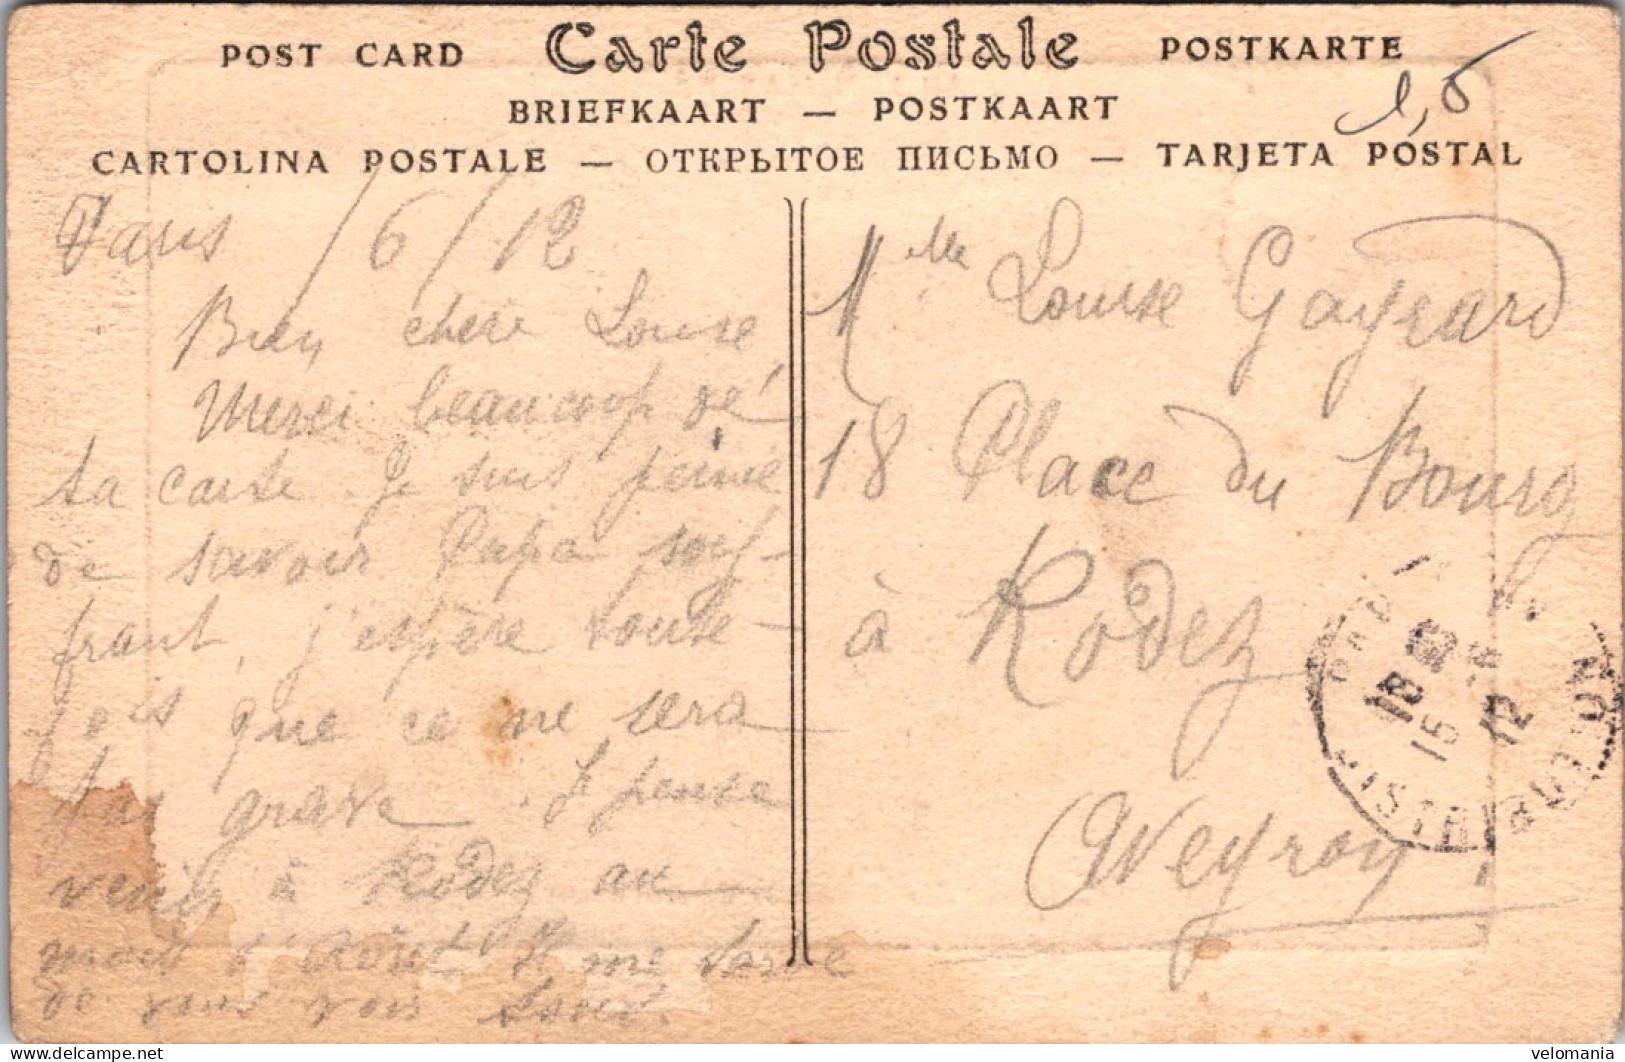 POST CARD Carte Postale POSTKARTE
1,5
BRIEFKAART — POSTKAART
CARTOLINA POSTALE — ОТКРЫТОЕ ПИСЬМО — TARJETA POSTAL
Paris / 6 / 12
Bien chere Louise,
Merci beaucoup de
ta carte. Je suis peiné
de savoir Papa souf-
frant, j'espère toute-
fois que ce ne sera
pas grave. Je pense
venir à Rodez au
mois d'Août. Il me tarde
de vous voir tous.
Mlle Louise Gayrard
18 Place du Bourg
à Rodez
Aveyron
18
15 - 6
12
DISTRIBUTION
velomania